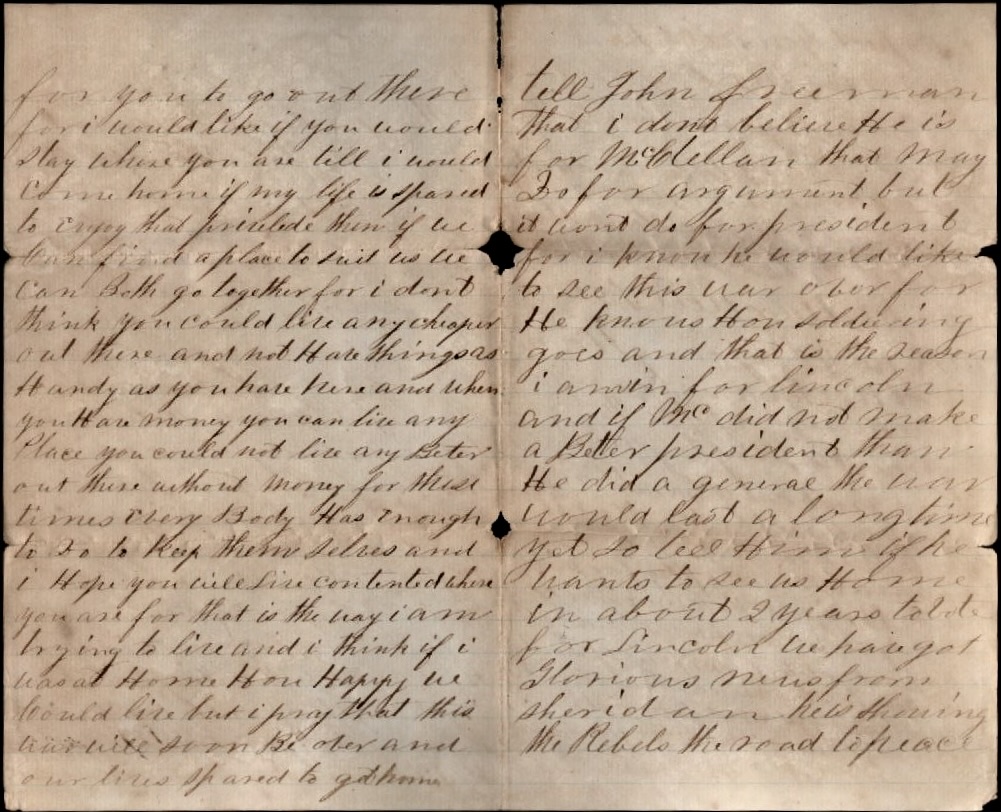 for you to go out there
for i would like if you would
stay where you are till i would
Come home if my life is spared
to Enjoy that privlede then if we
Can find a place to suit us we
Can Both go together for i dont
think you could live any cheaper
out there and not Have things as
Handy as you have here and when
you Have money you can live any
Place you could not live any Beter
out there without money for these
times Every Body Has Enough
to Do to Keep them selves and
i Hope you will Live contented where
you are for that is the way i am
trying to live and i think if i
was at Home How Happy we
Could live but i pray that this
war will soon Be over and
our lives spared to get home
tell John Freeman
that i dont believe He is
for McClellan that may
Do for argument but
it wont do for president
for i know he would like
to see this war over for
He knows How soldiering
goes and that is the reason
i am in for lincoln
and if Mc did not make
a Beter president than
He did a general the war
would last a long time
yet so tell Him if he
wants to see us Home
in about 2 years to
for Lincoln we have got
Glorious news from
sheridan he is showing
the Rebels the road to peace